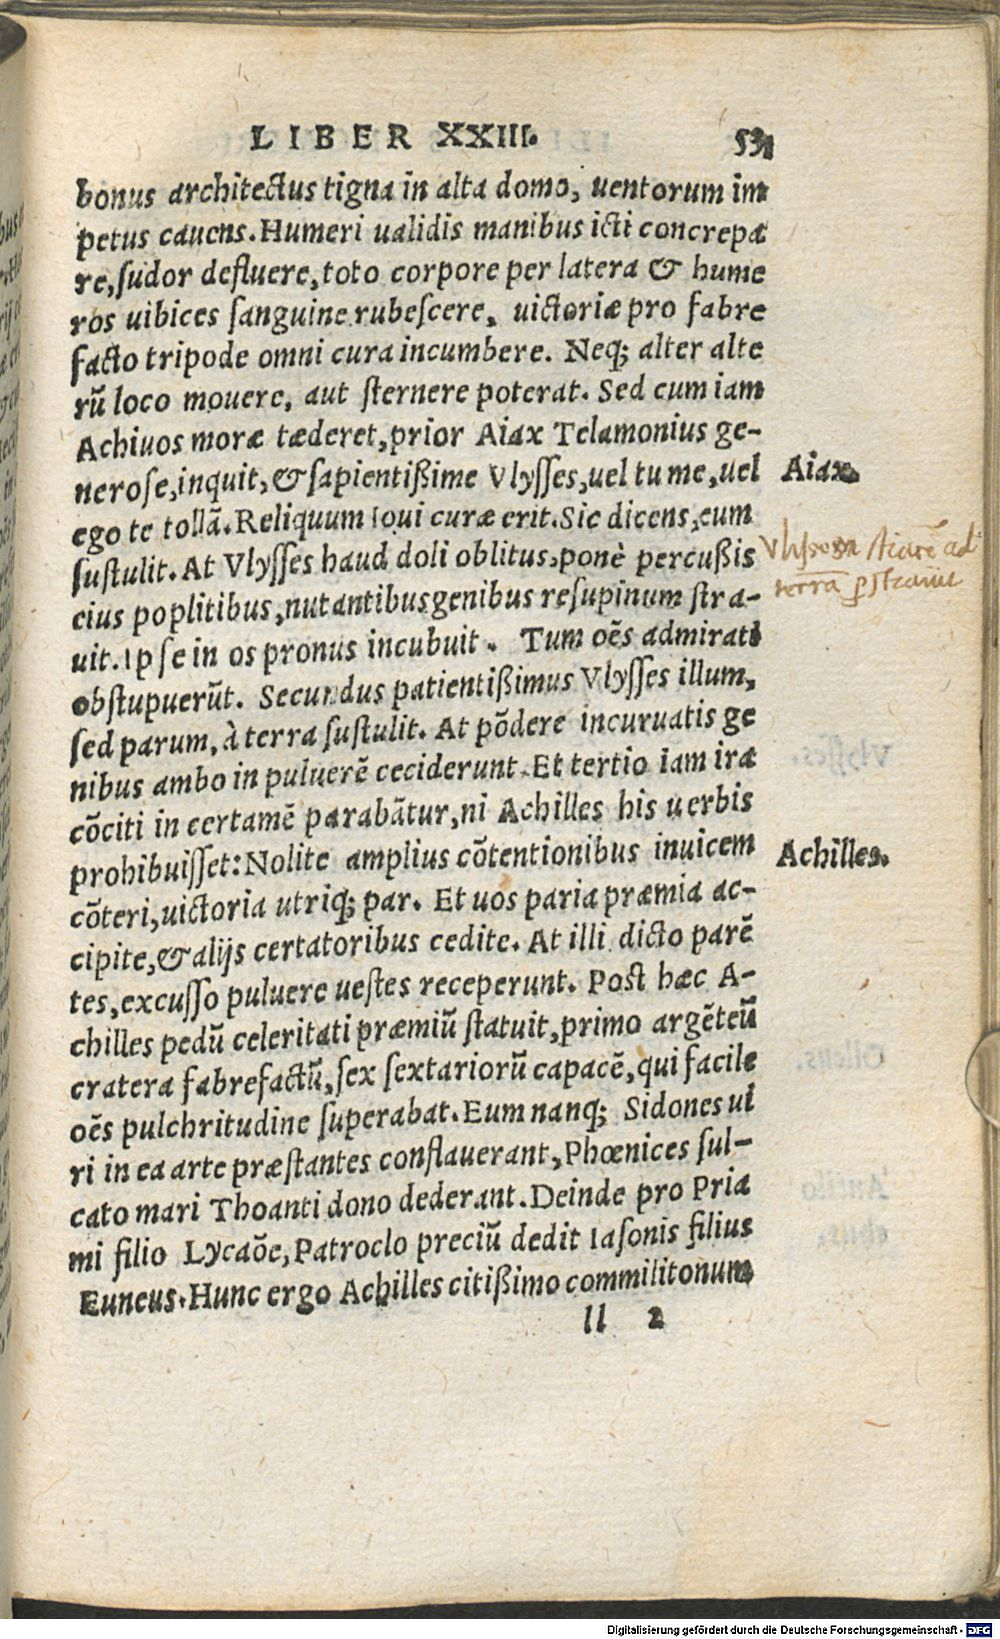 LIBER XXIII. 531
bonus architectus tigna in alta domo, uentorum im
petus cauens. Humeri ualidis manibus icti concrepa
re, sudor defluere, toto corpore per latera & hume
ros uibices sanguine rubescere, uictoriæ pro fabre
facto tripode omni cura incumbere. Neq; alter alte
rũ loco mouere, aut sternere poterat. Sed cum iam
Achiuos moræ tæderet, prior Aiax Telamonius ge-
nerose, inquit, & sapientißime Vlysses, uel tu me, uel
ego te tollã. Reliquum Ioui curæ erit. Sic dicens, eum
sustulit. At Vlysses haud doli oblitus, ponè percußis
eius poplitibus, nutantibus genibus resupinum stra-
uit. Ipse in os pronus incubuit. Tum oẽs admirati
obstupuerũt. Secundus patientißimus Vlysses illum,
sed parum, à terra sustulit. At põdere incuruatis ge
nibus ambo in puluerẽ ceciderunt. Et tertio iam iræ
cõciti in certamẽ parabãtur, ni Achilles his uerbis
prohibuisset: Nolite amplius cõtentionibus inuicem
cõteri, uictoria utriq; par. Et uos paria præmia ac-
cipite, & alijs certatoribus cedite. At illi dicto parẽ
tes, excusso puluere uestes receperunt. Post hæc A-
chilles pedũ celeritati præmiũ statuit, primo argẽteũ
cratera fabrefactũ, sex sextariorũ capacẽ, qui facile
oẽs pulchritudine superabat. Eum nanq; Sidones ui
ri in ea arte præstantes conflauerant, Phœnices sul-
cato mari Thoanti dono dederant. Deinde pro Pria
mi filio Lycaõe, Patroclo preciũ dedit Iasonis filius
Euneus. Hunc ergo Achilles citißimo commilitonum
ll 2
Aiax.
ad
terra
Achilles.
Digitalisierung gefördert durch die Deutsche Forschungsgemeinschaft - DFG